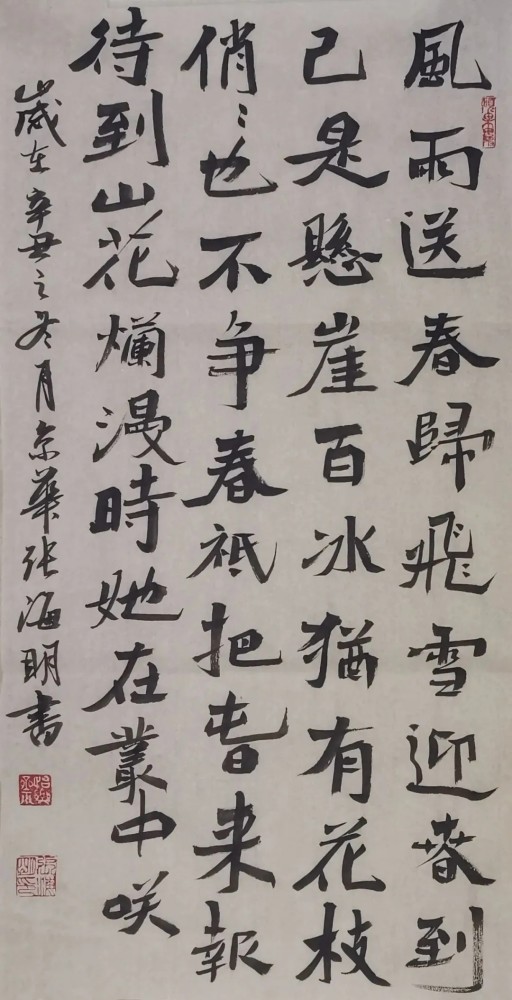 風雨送春歸飛雪迎春到
已是懸崖百冰猶有花枝
俏〻也不争春祇把春来報
待到山花爛漫時她在叢中咲
歲在辛丑之冬月京華张海明書